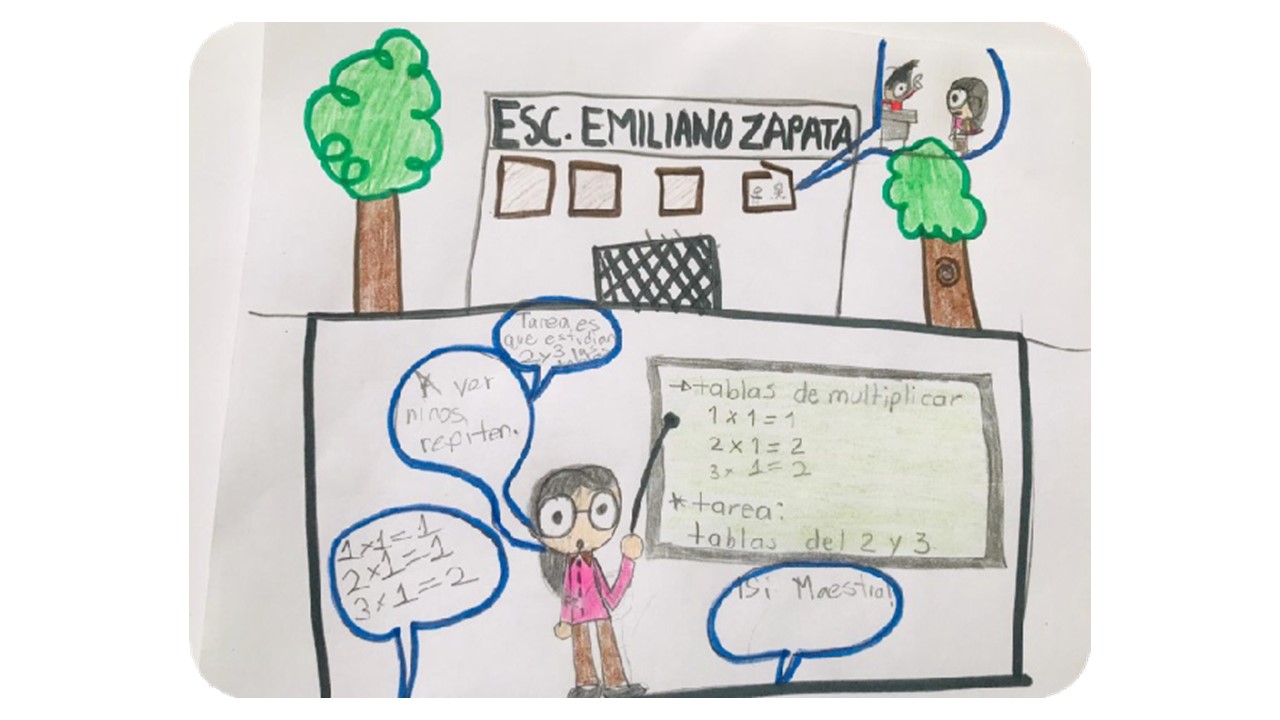 ESC. EMILIANO ZAPATA
Tarea es
que estudian
2 y 3 las
A ver
niños,
repiten.
→tablas de multiplicar
1 x 1 = 1
2 x 1 = 2
3 x 1 = 2
*tarea:
tablas del 2 y 3
1x1=1
2x1=1
3x1=2
¡Si Maestra!